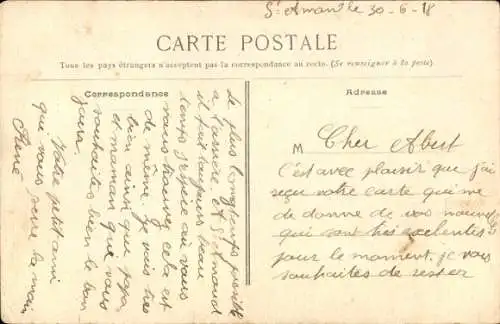 St Amand le 30-6-18
CARTE POSTALE
Tous les pays étrangers n'acceptent pas la correspondance au recto. (Se renseigner à la poste).
Correspondance
Adresse
M Cher Abert
C'est avec plaisir que j'ai
reçu votre carte qui me
de donne de vos nouvelles
qui sont très exelentes
pour le moment. je vous
souhaites de rester
le plus longtemps possible
a . A St Amand
il fait toujours beau
temps j'espère au vous
vous trouvez cela est
de même. Je vais très
bien ainsi que papa
et maman que vous
souhaites bien le bon
jour.
Votre petit ami
que vous serre la main
René